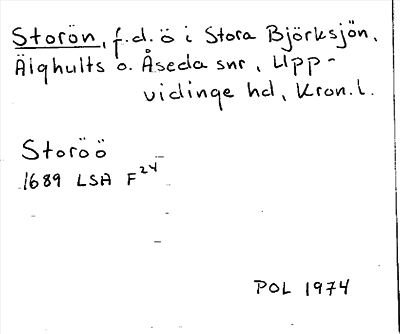 Storön, f.d. ö i Stora Björksjön,
Älghults o. Åseda snr, Upp-
vidinge hd, Kron.l.
Storöö
1689 LSA F²⁴
POL 1974